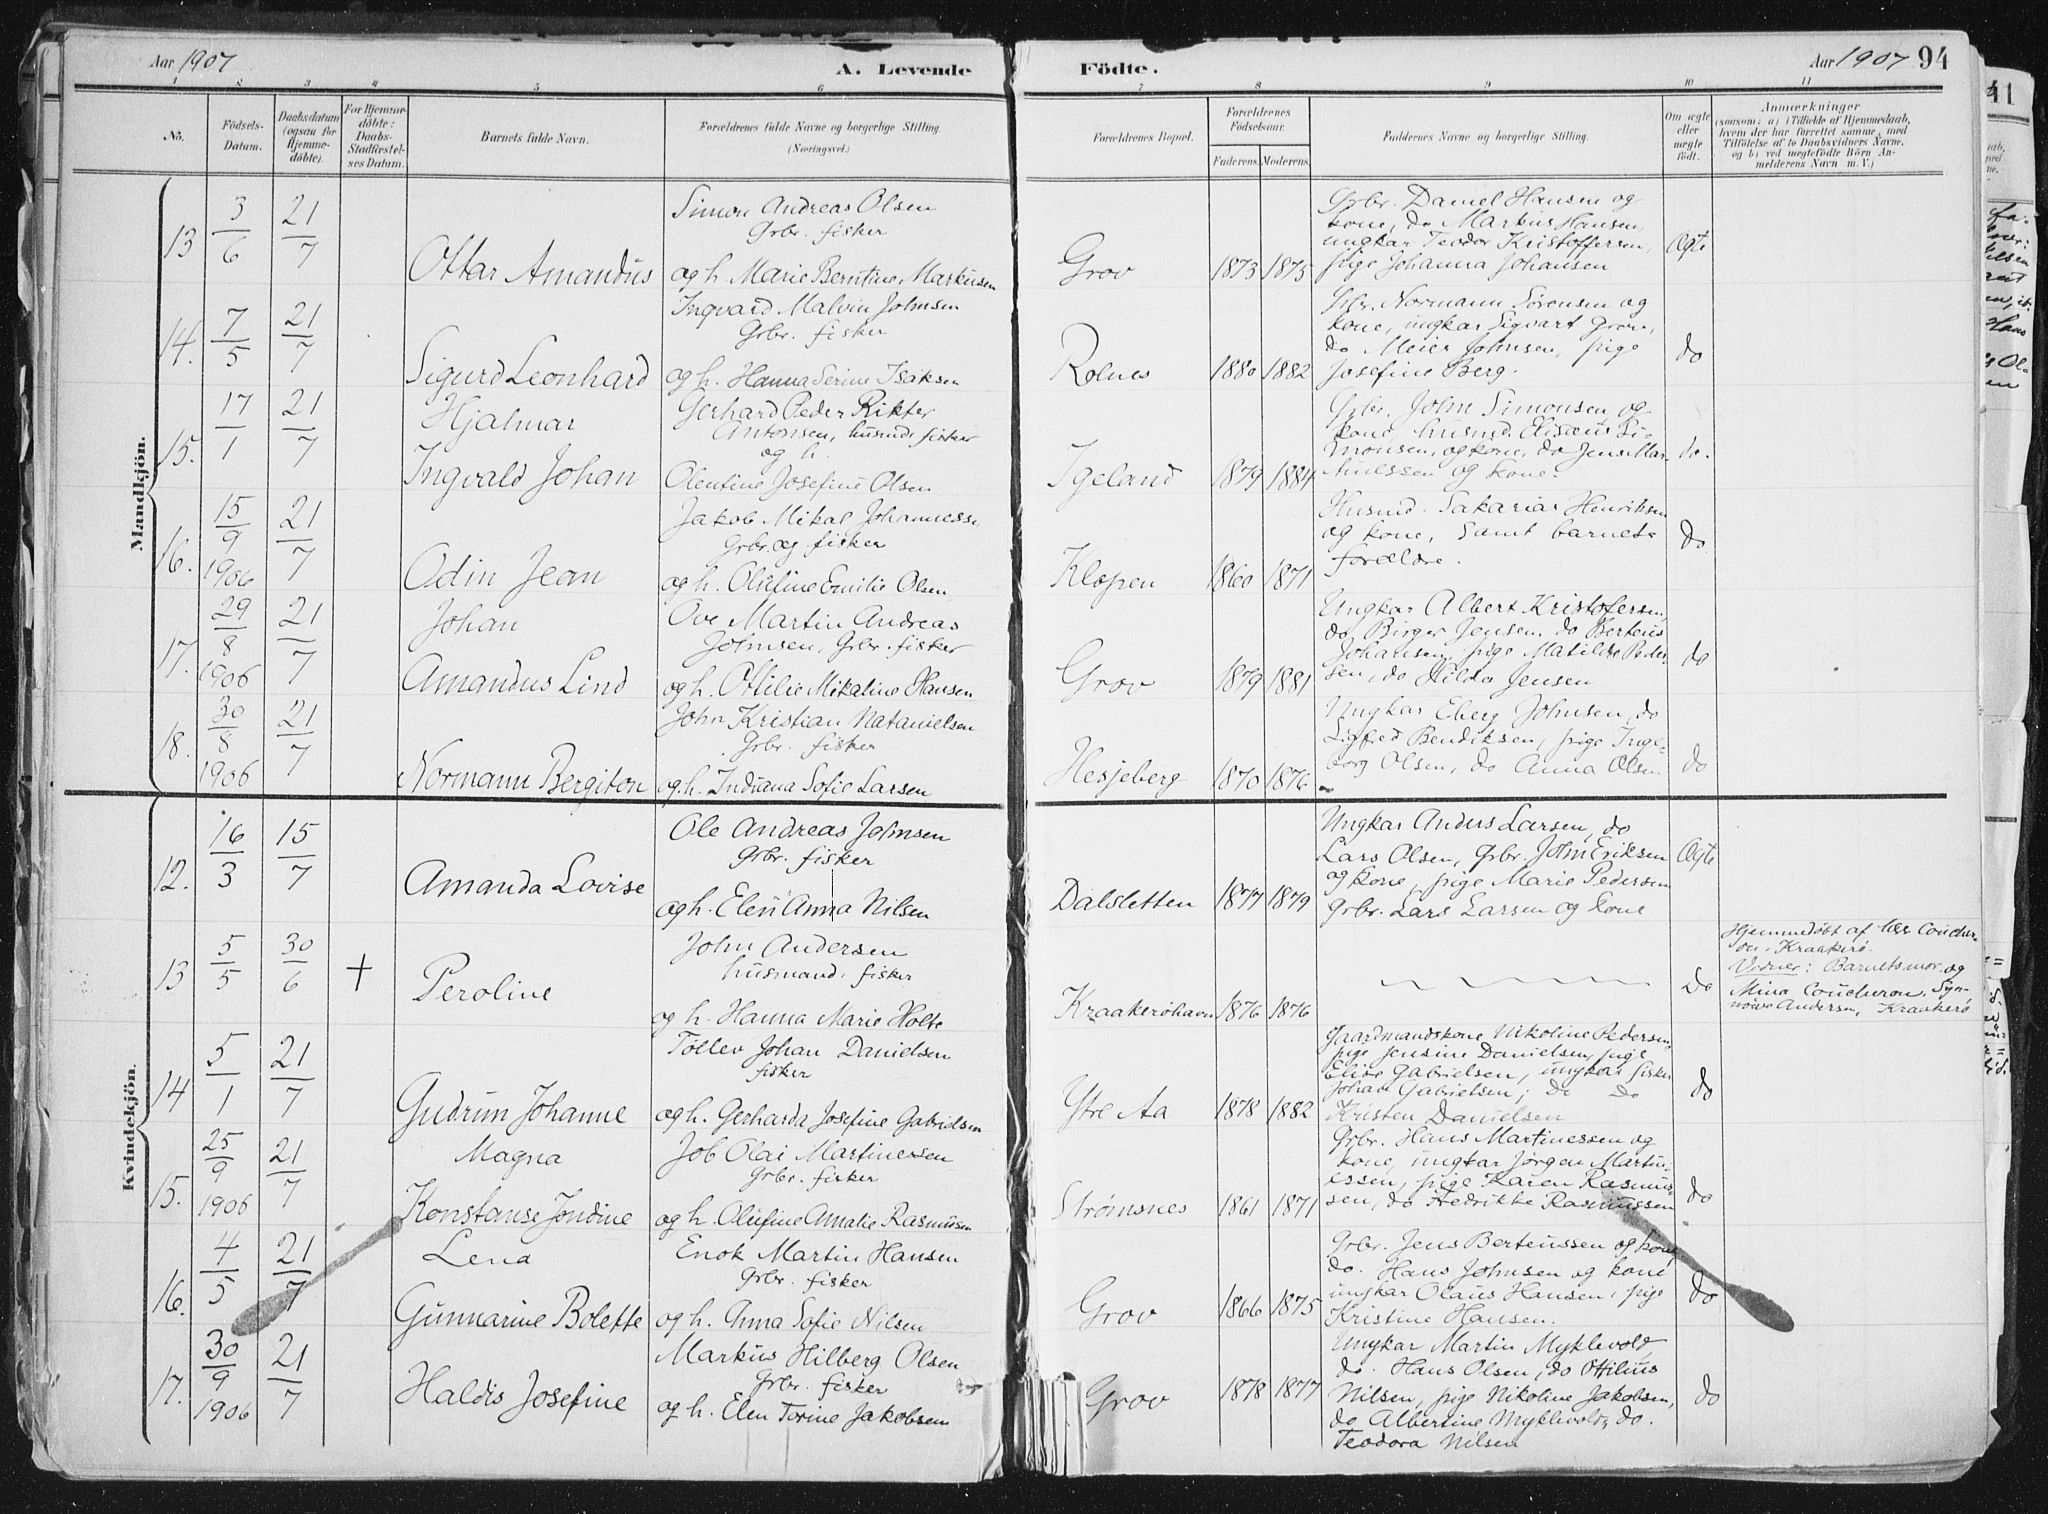 Aar 1907
A. Levende
Födte.
Aar 1907 94
1 2 3 4 5 6 7 8 9 10 11
No.
Födsels-
Datum.
Daabsdatum
(ogsaa for
Hjemme-
döbte).
For Hjemme-
döbte:
Daabs-
Stadfæstel-
ses Datum.
Barnets fulde Navn.
Forældrenes fulde Navne og borgerlige Stilling.
(Næringsvei.)
Forældrenes Bopæl.
Forældrenes
Födselsaar.
Faderens. Moderens.
Faddernes Navne og borgerlige Stilling.
Om ægte
eller
uægte
födt.
Anmærkninger
(saasom: a) i Tilfælde af Hjemmedaab,
hvem der har forrettet samme, med
Tilföielse af to Daabsvidners Navne,
og b) ved uægtefödte Börn An-
melderens Navn m. V.)
Mandkjön.
13
3/6
21/7
Ottar Amandus
Simon Andreas Olsen
Grbr. fisker
og h. Marie Berntine Markusen
Grov
1873 1875
Grbr. Daniel Hansen og
kone, do Markus Hansen,
ungkar Teodor Kristoffersen,
pige Johanna Johansen
Ægte
14.
7/5
21/7
Sigurd Leonhard
Ingvard Malvin Johnsen
Grbr. fisker
og h. Hanna Serine Isaksen
Rolnes
1880 1882
Grbr. Normann Sörensen og
kone, ungkar Sigvart Grov,
do Meier Johnsen, pige
Josefine Berg.
do
15.
17/1
21/7
Hjalmar
Ingvald Johan
Gerhard Peder Rikter
Antonsen, husmd. fisker
og h.
Olentine Josefine Olsen
Igeland
1879 1884
Grbr. John Simonsen og
kone, husmd. Elisæus Si-
monsen, og kone, do Jens Mar-
tinessen og kone.
do.
16.
15/9
1906
21/7
Odin Jean
Jakob Mikal Johannesse
Grbr. og fisker
og h. Olufine Emilie Olsen
Klopen
1860 1871
Husmd. Sakarias Henriksen
og kone, samt barnets
forældre.
do
17.
29/8
1906
21/7
Johan
Amandus Lind
Ove Martin Andreas
Johnsen, Grbr. fisker
og h. Ottilie Mikaline Hansen
Grov
1879 1881
Ungkar Albert Kristofersen,
do Birger Jensen, do Berteus
Johansen, pige Matilde Peder-
sen, do Hilda Jensen
do
18.
30/8
1906
21/7
Normann Bergiton
John Kristian Natanielsen
Grbr. fisker
og h. Indiana Sofie Larsen
Hesjeberg
1870 1876
Ungkar Eberg Johnsen, do
Sigfred Bendiksen, pige Inge-
borg Olsen, do Anna Olsen
do
Kvindekjön.
12.
16/3
15/7
Amanda Lovise
Ole Andreas Johnsen
Grbr. fisker
og h. Elen Anna Nilsen
Dalsletten
1877 1879
Ungkar Anders Larsen, do
Lars Olsen, Grbr. John Eriksen
og kone, pige Marie Pedersen
Grbr. Lars Larsen og kone
Ægte
13
5/5
30/6
+
Peroline
John Andersen
husmand. fisker
og h. Hanna Marie Holte
Kraakeröhavn
1876 1876
do
Hjemmedöbt af Coucher-
on, Kraakerö
Vidner: Barnets mor og
Mina Coucheron, Syn-
növe Andersen, Kraakerö
14
5/1
21/7
Gudrun Johanne
Tollev Johan Danielsen
fisker
og h. Gerharda Josefine Gabrielsen
Ytre Aa
1878 1882
Gaardmandskone Nikoline Pedersen,
pige Jensine Danielsen, pige
Elise Gabrielsen, ungkar fisker
Johan Gabrielsen; Do Do
Kristen Danielsen
do
15.
25/9
1906
21/7
Magna
Konstanse Jondine
Job Olai Martinessen
Grbr. fisker
og h. Olufine Amalie Rasmusen
Strømsnes
1861 1871
Grbr. Hans Martinessen og
kone, ungkar Jørgen Martin-
essen, pige Karen Rasmus-
sen, do Hedrikke Rasmussen
do
16.
4/5
21/7
Lena
Gunnarine Bolette
Enok Martin Hansen
Grbr. fisker
og h. Anna Sofie Nilsen
Grov
1866 1875
Grbr. Jens Berteussen og kone
do. Hans Johnsen og kone
ungkar Olaus Hansen, pige
Kristine Hansen.
do
17.
30/9
1906
21/7
Haldis Josefine
Markus Hilberg Olsen
Grbr. fisker
og h. Elen Torine Jakobsen
Grov
1878 1877
Ungkar Martin Myklevold,
do. Hans Olsen, do Ottilius
Nilsen, pige Nikoline Jakobsen,
do Albertine Myklevold, do.
Teodora Nilsen
do